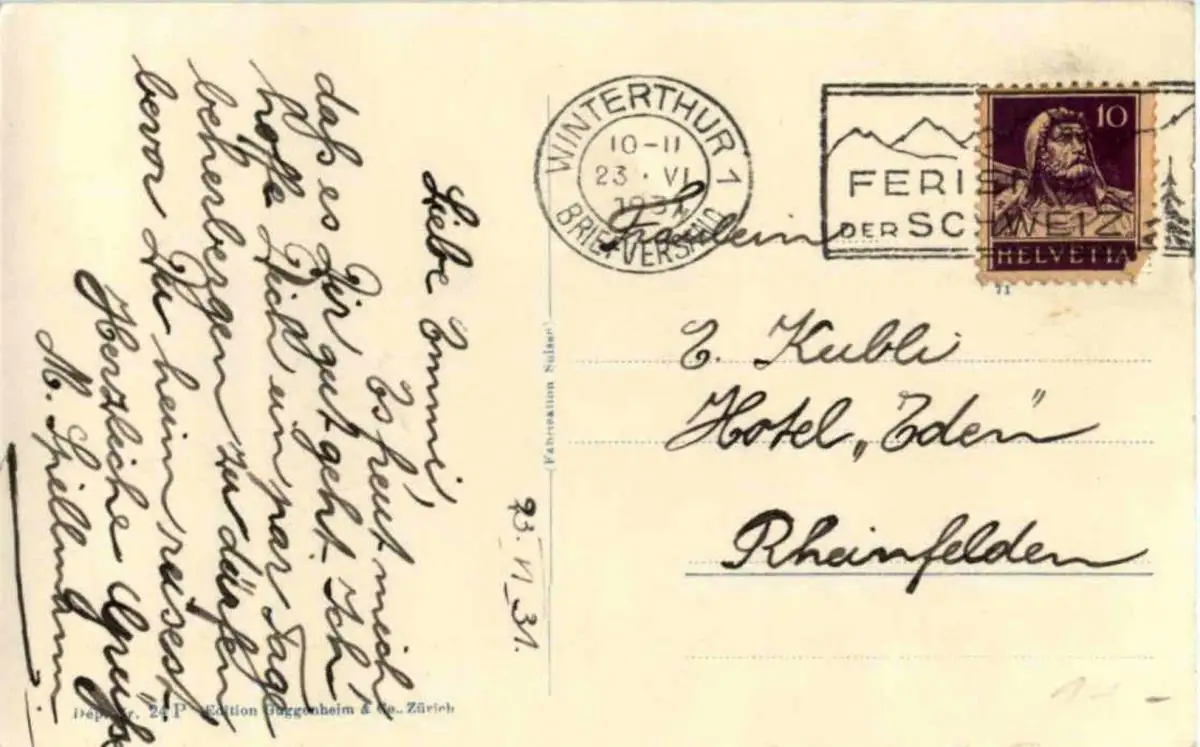 Liebe Emmi,
Es freut mich
dass es Dir gut geht. Ich
hoffe Dich ein par Tage
beherbergen zu dürfen,
bevor Du heim reisest.
Herzliche Grüsse
M. Spillmann.
23. VI_31.
Dep. Nr. 24 P Edition Guggenheim & Co., Zürich
(Fabrication Suisse)
WINTERTHUR 1
10-11
23 · VI
1931
BRIEFVERSAND
DER SCHWEIZ
10
HELVETIA
71
Fräulein
E. Kubli
Hotel „Eden"
Rheinfelden